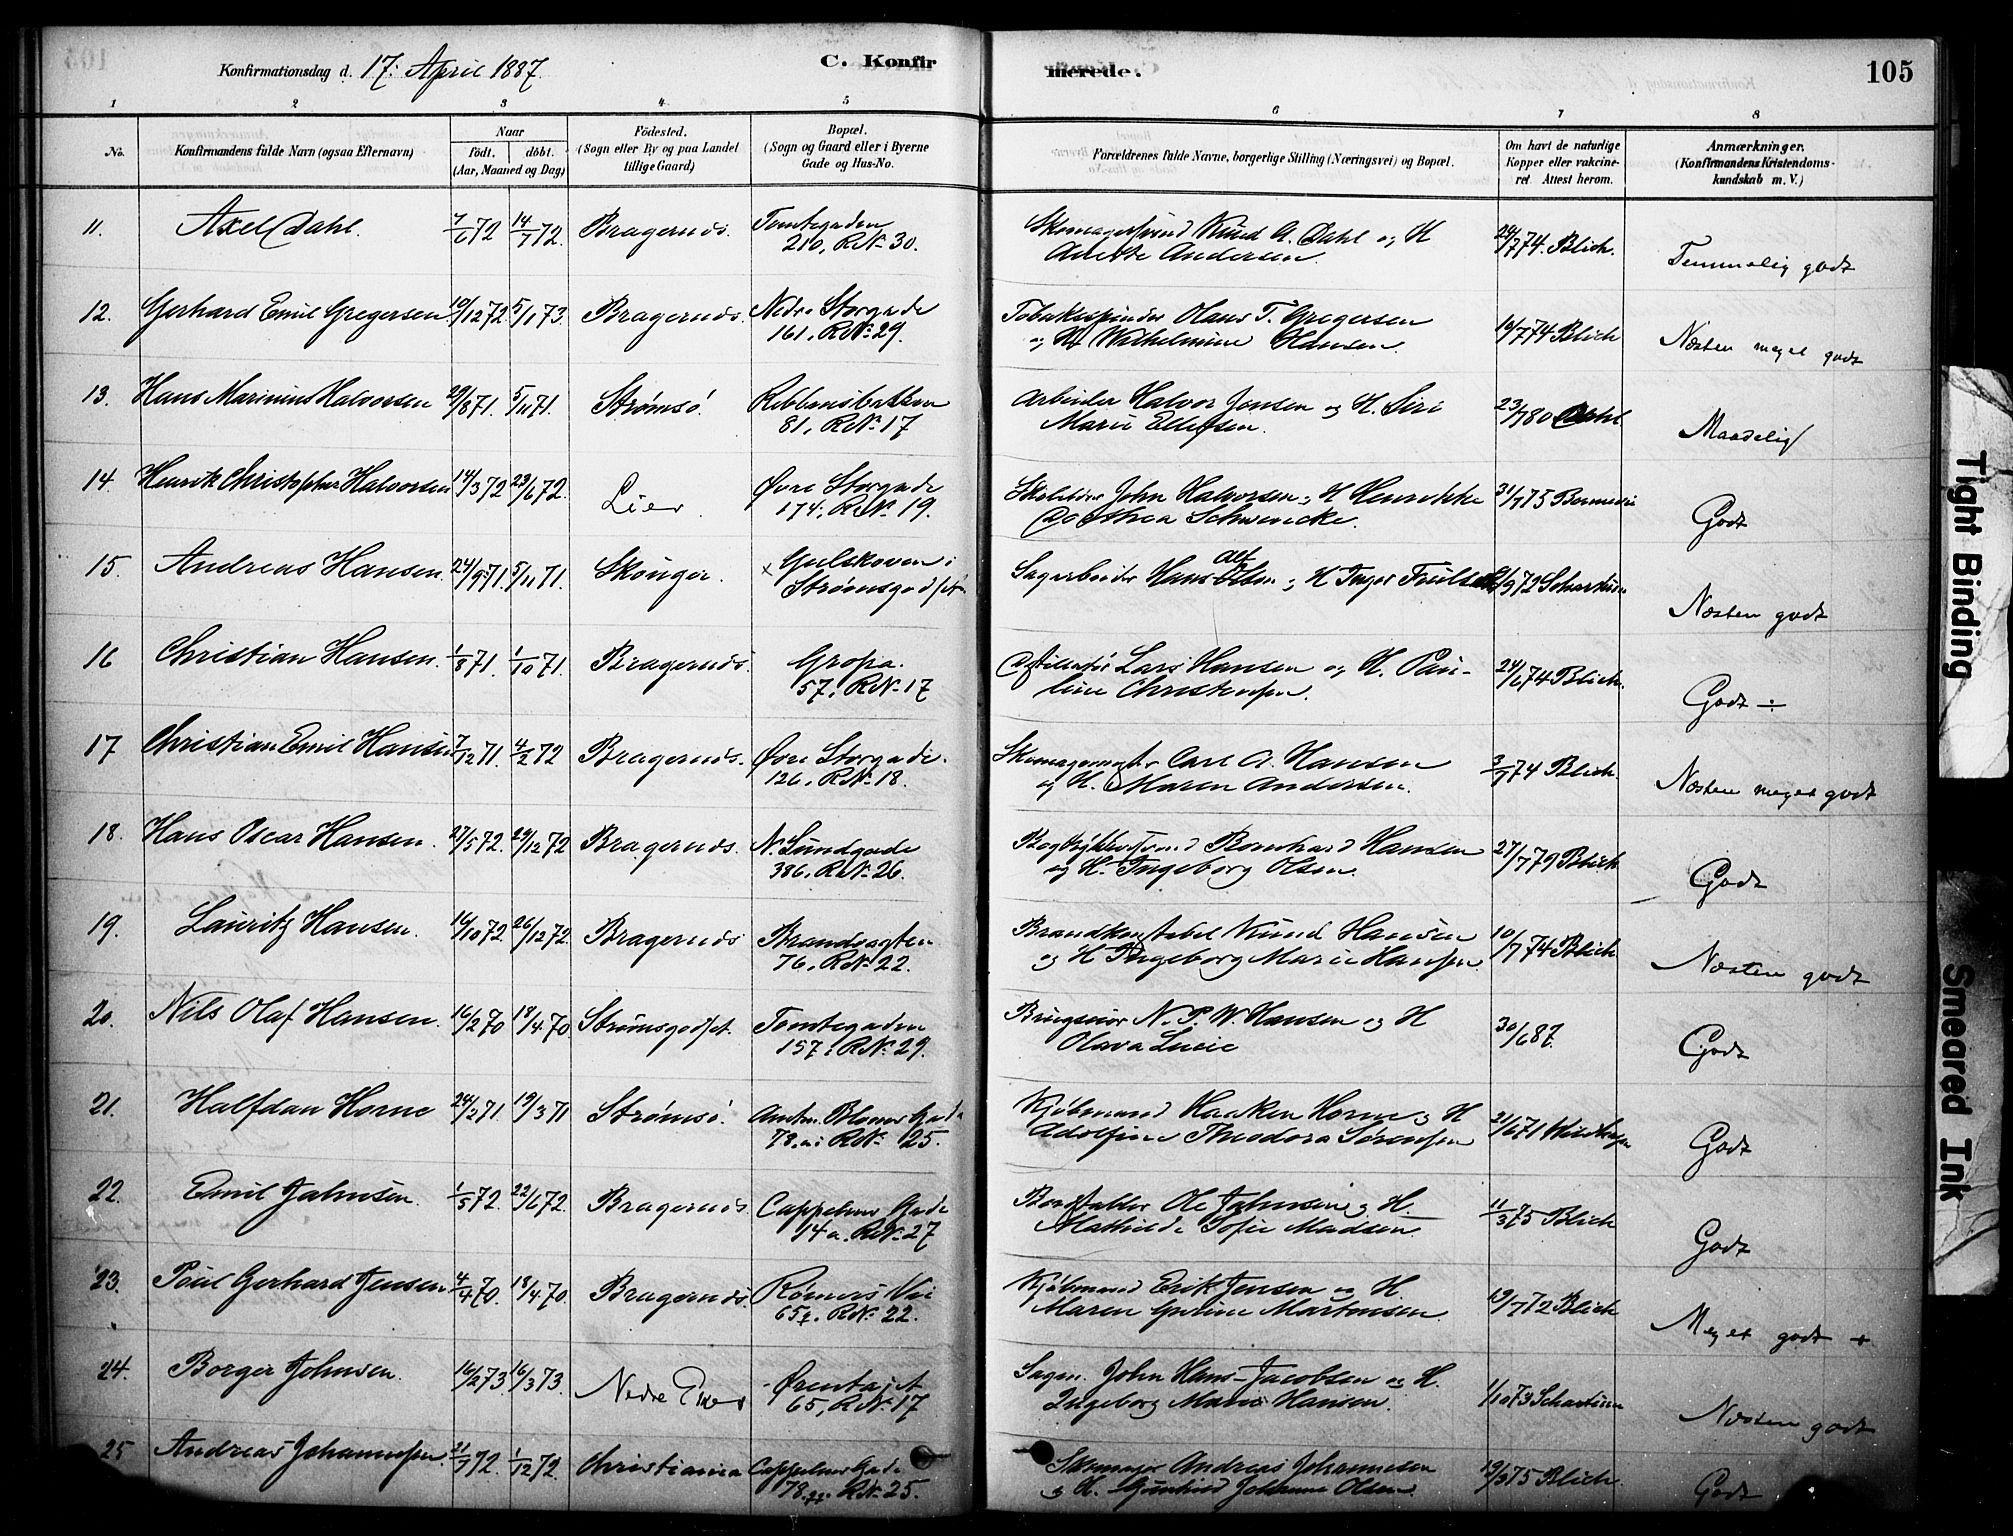 Konfirmationsdag d. 17. April 1887.
C. Konfirmerede.
105
1 2 3 4 5 6 7 8
No.
Konfirmandens fulde Navn (ogsaa Efternavn)
Naar
födt. döbt.
(Aar, Maaned og Dag)
Födested.
(Sogn eller By og paa Landet
tillige Gaard)
Bopæl.
(Sogn og Gaard eller i Byerne
Gade og Hus-No.
Forældrenes fulde Navne, borgerlige Stilling (Næringsvei) og Bopæl.
Om havt de naturlige
Kopper eller vakcine-
ret Attest herom.
Anmærkninger.
(Konfirmandens Kristendoms-
kundskab m. V.)
11. Axel Dahl. 7/6 72 14/7 72. Bragernæs. Tomtegaden
210, R.N. 30.
Knud A. Dahl og H
Andersen.
24/7 74. Blich.
Temmelig godt
12. Gerhard Emil Gregersen 10/12 72 5/1 73. Bragernæs. Nedre Storgade
161, R.N. 29.
Tobaksspinder Hans T. Gregersen
og H. Wilhelmine Hansen.
16/7 74 Blich
Næsten meget godt
13. Hans Marinius Halvorsen 29/8 71. 5/11 71. Strømsö.
81, R.N. 17
Arbeider Halvor Jensen og H. Siri
Marie Ellefsen.
23/7 80 Dahl
Maadelig
14. Henrik Christopher Halvorsen 14/3 72 23/6 72. Lier. Øvre Storgade
174, R.N. 19.
John Halvorsen og H
Dorthea Schwencke.
31/7 75
Godt
15. Andreas Hansen. 24/9 71. 5/11 71. Skouger. x Gulskoven i
Strømsgodset
Sagarbeider Hans Olsen og H Inger
/9 72
Næsten godt
16 Christian Hansen. 1/8 71. 1/10 71. Bragernæs. Gropa.
57, R.N. 17
Lars Hansen og H. Pau-
line Christensen.
24/6 74 Blich.
Godt ÷
17 Christian Emil Hansen 7/12 71. 4/2 72 Bragernæs. Øvre Storgade.
126, R.N. 18.
Carl A. Hansen
og H. Maren Andersen.
3/7 74 Blich.
Næsten meget godt
18. Hans Oscar Hansen. 27/5 72. 29/12 72 Bragernæs. N. Sundgade
386, R.N. 26.
Bernhard Hansen
og H. Ingeborg Olsen.
27/7 79 Blich
Godt
19. Lauritz Hansen. 16/10 72 26/12 72. Bragernæs Brandvagten
76, R.N. 22.
Brandkonstabel Knud Hansen
og H Ingeborg Marie Hansen
10/7 74 Blich
Næsten godt
20. Nils Olaf Hansen. 16/2 70 18/4 70. Strømsgodset. Tomtegaden
157, R.N. 29.
Brugseier N. P. W. Hansen og H
Olava Lucie
30/6 87.
Godt
21. Halfdan Horne 24/2 71. 19/3 71 Strømsö. Amtm. Blomes Gade
78, R.N. 25.
Kjöbmand Haaken Horne og H
Adolfine Theodora Sørensen
21/6 71
Godt
22. Emil Jahnsen 1/5 72. 22/6 72. Bragernæs. Cappelens Gade
14a. R.N. 27
Ole Jahnsen og H.
Mathilde Sofie Madsen
11/3 75 Blich
Godt
23. Poul Gerhard Jensen 4/4 70. 18/4 70. Bragernæs. Rømers Vei
65, R.N. 22.
Kjöbmand Erik Jensen og H.
Maren Gurine Martensen.
19/7 72 Blich
Meget godt +
24. Borger Johnsen. 16/2 73 16/3 73. Nedre Eker
65, R.N. 17
Sagm. John Hans Jacobsen og H.
Ingeborg Marie Hansen.
1/10 73
Næsten godt
25 Andreas Johannessen. 21/7 72. 1/12 72. Christiania Cappelens Gade
78, R.N. 25.
Skomager Andreas Johannesen
og H. Gunhild Johanne Olsen.
19/3 75 Blich.
Godt
Tight Binding
Smeared Ink